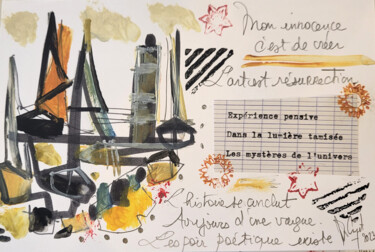 Mon innocence
c'est de créer
L'art est résurrection
Expérience pensive
Dans la lumière tamisée
Les mystères de l'univers
L'histoire
toujours d'une vague.
L'espoir poétique existe